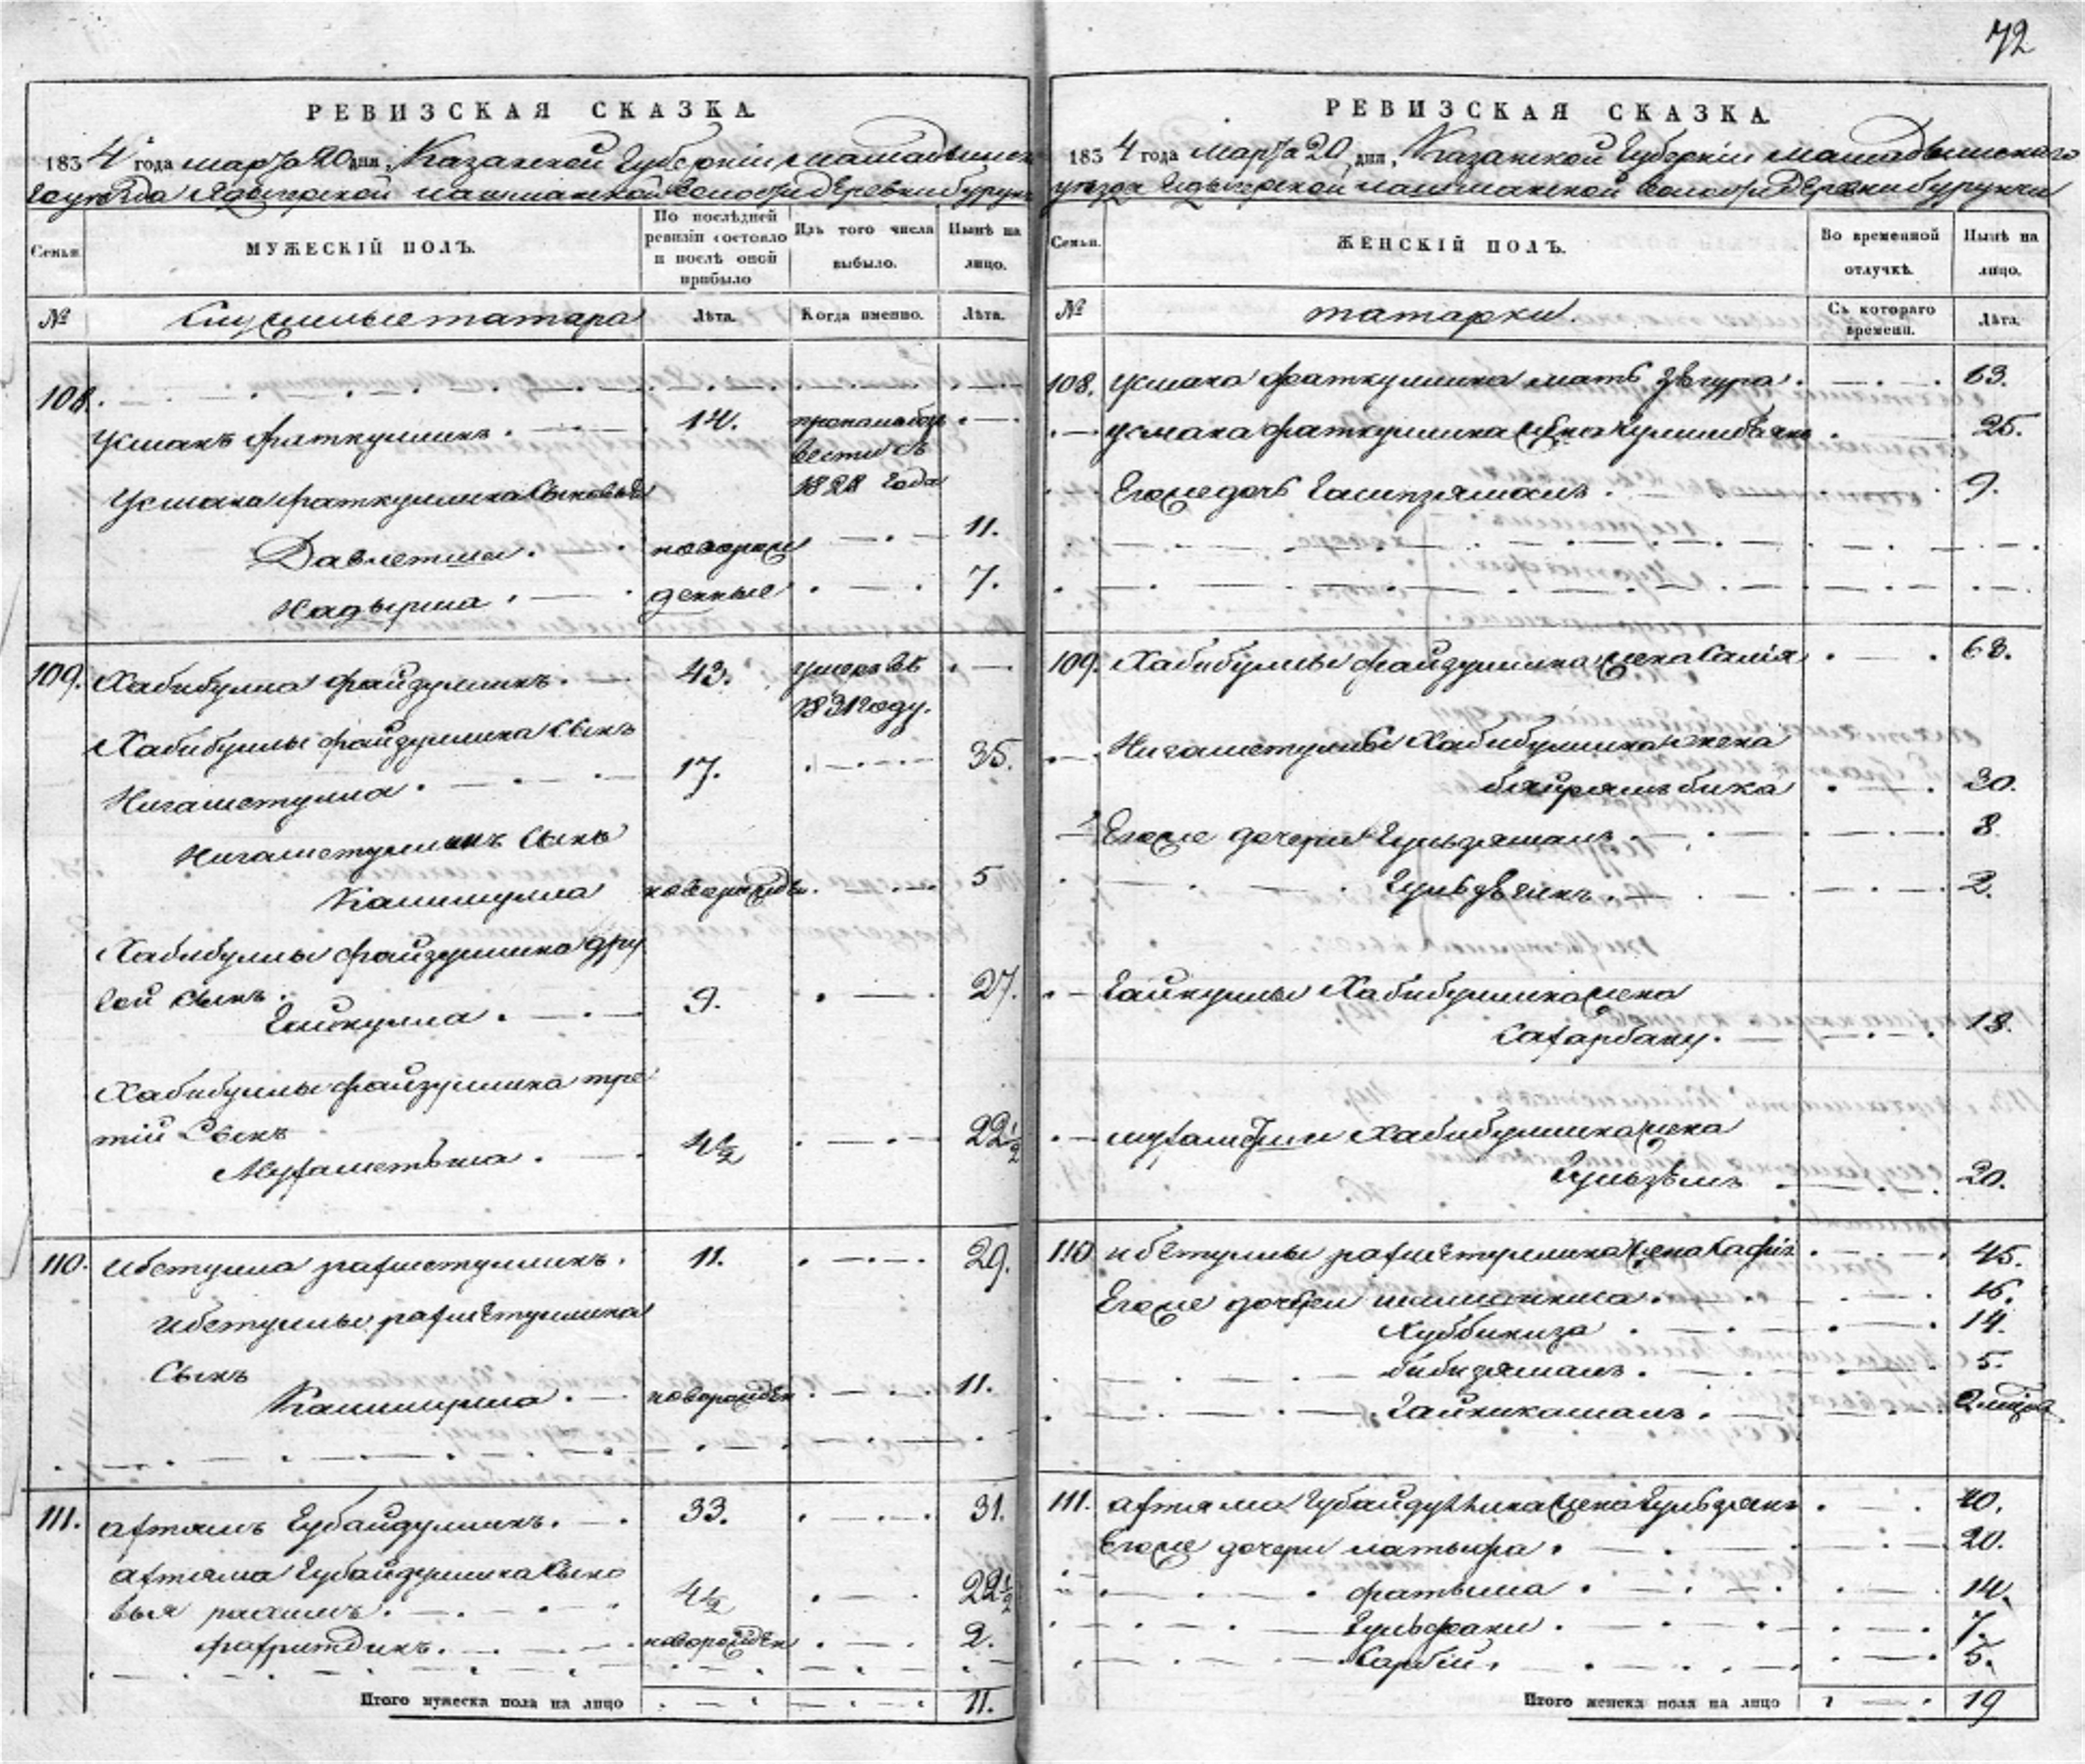 72
РЕВИЗСКАЯ СКАЗКА.
1834 года марта 20 дня, Казанской Губернiи мамадышск
гоуѣзда нашманской волости деревни бурунч
Семьи.
МУЖЕСКIЙ ПОЛЪ.
По послѣдней ревизiи состояло и послѣ оной прибыло
Изъ того числа выбыло.
Нынѣ на лицо.
№
служилые татара
Лѣта.
Когда именно.
Лѣта.
108.
Усманъ фаткуллинъ. 14.
вести съ
1828 года
Усмана фаткуллина сыновья
Давлетша. новорож 11.
Надырша. денные 7.
109. Хабибулла файзуллинъ. 43. умеръ въ
1831 году.
Хабибуллы файзуллина сынъ
Нигаметулла. 17. 35.
Нигаметуллинъ сынъ
Калимулла новорожден. 5
Хабибуллы файзуллина дру
гой сынъ.
Гайнулла. 9. 27.
Хабибуллы файзуллина тре
тiй сынъ
Мухаметьша. 4½ 22½
110. ибетулла рахметуллинъ. 11. 29.
ибетуллы рахметуллина
сынъ
Калимулла. новорожден 11.
111. ахтямъ Губайдуллинъ. 33. 31.
ахтяма Губайдуллина сыно
вья рахимъ. 4½ 22½
фахритдинъ. новорожден 2.
Итого мужеска пола на лицо 11.
РЕВИЗСКАЯ СКАЗКА.
1834 года Марта 20 дня, Казанской Губернiи мамадышскаго
уѣзда нашманской волости деревни бурунчи
Семьи.
ЖЕНСКIЙ ПОЛЪ.
Во временной отлучкѣ.
Нынѣ на лицо.
№
татарки.
Съ котораго времени.
Лѣта.
108. усмана фаткуллина мать Зюгура. 63.
усмана фаткуллина жена 25.
Егоже дочь Галипзямалъ. 9.
109. Хабибуллы файзуллина жена Салiя 68.
Нигаметуллы Хабибуллина жена
байрямъ бика 30.
Егоже дочери Гульзямалъ. 8
2.
Гайнуллы Хабибуллина жена
Сахарбану. 18.
мухаметши Хабибуллина жена
Гульзѣмъ 20.
110 ибетуллы рахметуллина жена 45.
Егоже дочери 16.
Хуббиниза 14.
бибизямалъ. 5.
Гайникамалъ. 2
111. ахтяма Губайдуллина жена 40.
Егоже дочери латыфа. 20.
фатыма 14.
Гульфани. 7.
Сарбiй. 5.
Итого женска пола на лицо 19